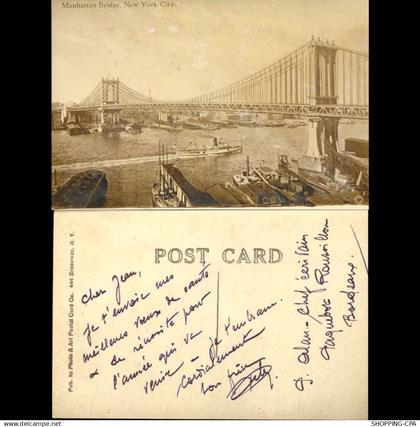 Manhattan Bridge, New York City.
POST CARD
Pub. by Photo & Art Postal Card Co. 444 Broadway, N. Y.
Cher Jean,
je t'envoie mes
meilleurs vœux de santé
& de réussite pour
l'année qui va
venir - je t'embrasse
cordialement
ton frère
J. Alan - Chef écrivain
Paquebot Roussillon
Bordeaux.
SHOPPING-CPA